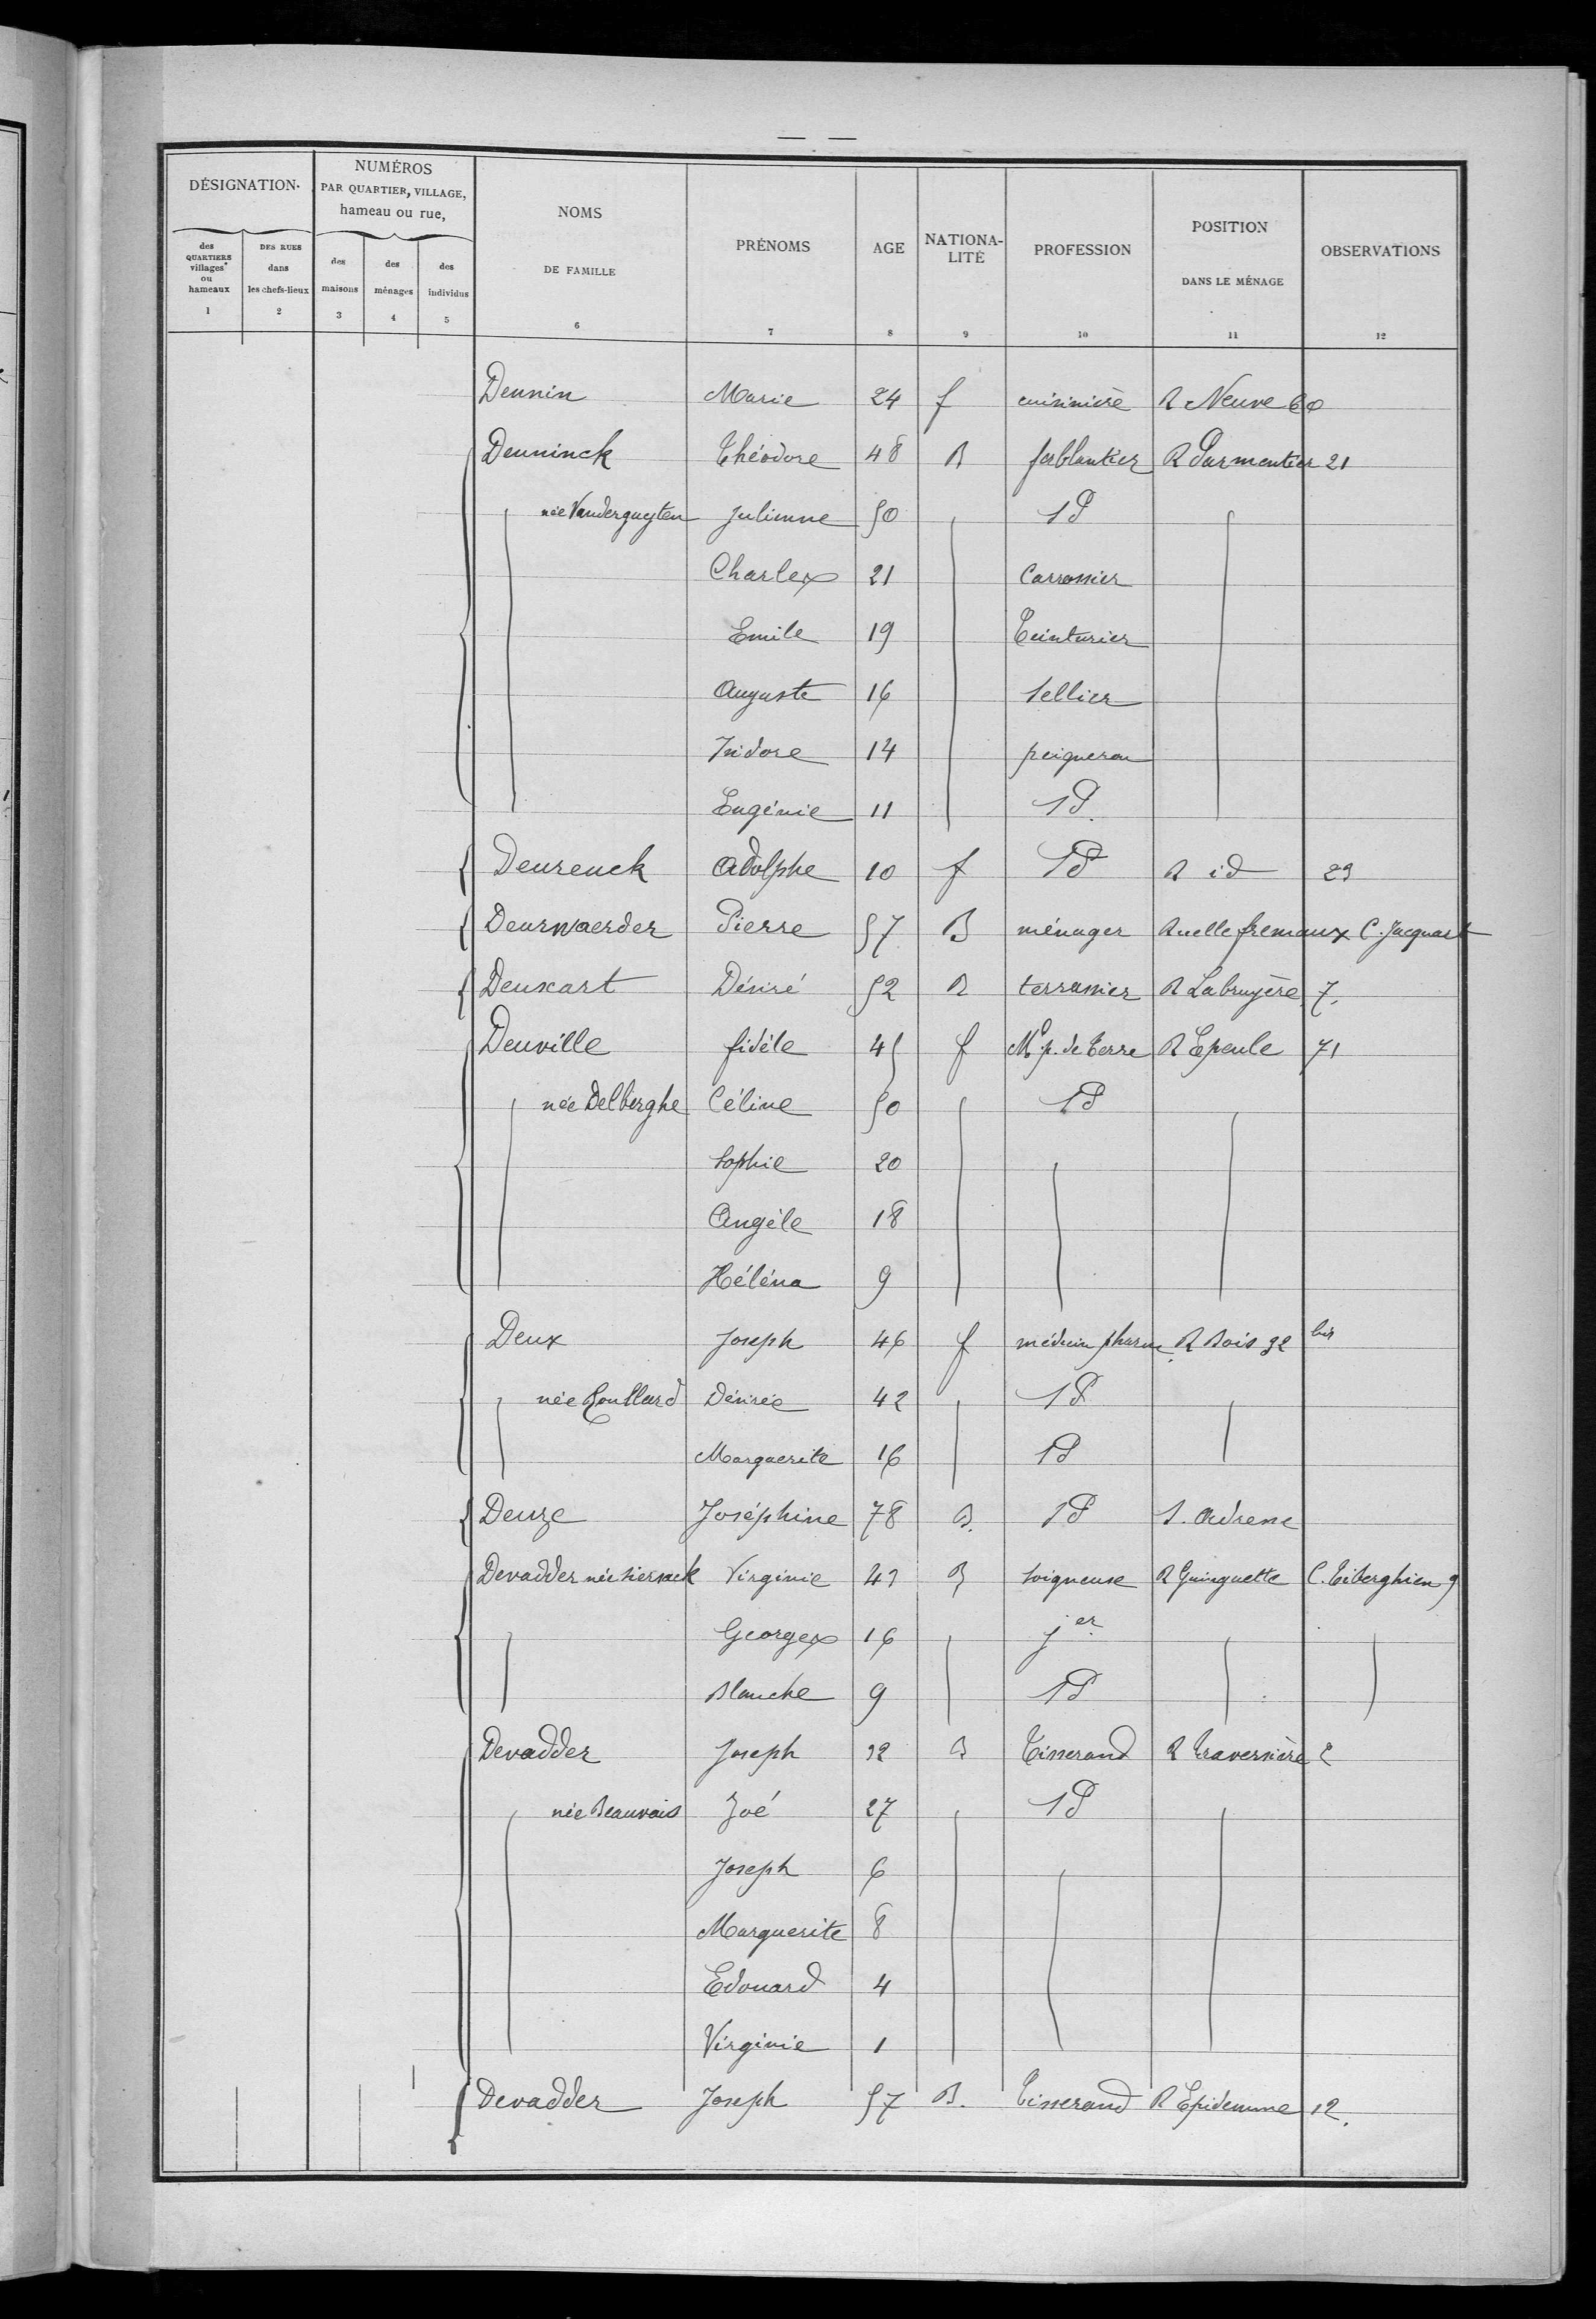 DÉSIGNATION
NUMÉROS PAR QUARTIER, VILLAGE, hameau ou rue,
NOMS DE FAMILLE
PRÉNOMS
AGE
NATIONA-LITÉ
PROFESSION
POSITION DANS LE MÉNAGE
OBSERVATIONS
des QUARTIERS villages ou hameaux
DES RUES dans les chefs-lieux
des maisons
des ménages
des individus
1 2 3 4 5 6 7 8 9 10 11 12
Deunin Marie 24 f cuisinière R Neuve 60
Deuninck Théodore 48 B ferblantier R Parmentier 21
née Vanderguyten Julienne 50 SP
Charles 21 Carrossier
Emile 19 Teinturier
Auguste 16 Sellier
Isidore 14 peigneron
Eugénie 11 SP
Deurenck Adolphe 10 f SP R id 23
Deurwaerder Pierre 57 B ménager Ruelle fremaux C. Jacquart
Deuscart Désiré 52 B terrassier R Labruyère 7.
Deuville fidèle 45 f Md p. de Terre R Epeule 71
née Delberghe Céline 50 SP
Sophie 20
Angèle 18
Héléna 9
Deux Joseph 46 f médecin pharm. R Bois 32 bis
née Roullard Désirée 42 SP
Marguerite 16 SP
Deuze Joséphine 78 B. SP S. Adresse
Devadder née Virginie 43 B soigneuse R Guinguette C. Tiberghien 9
Georges 16 jer
Blanche 9 SP
Devadder Joseph 32 B Tisserand R Traversière 2
née Beauvais Zoé 27 SP
Joseph 6
Marguerite 8
Edouard 4
Virginie 1
Devadder Joseph 57 B. Tisserand R Epidemme 12.